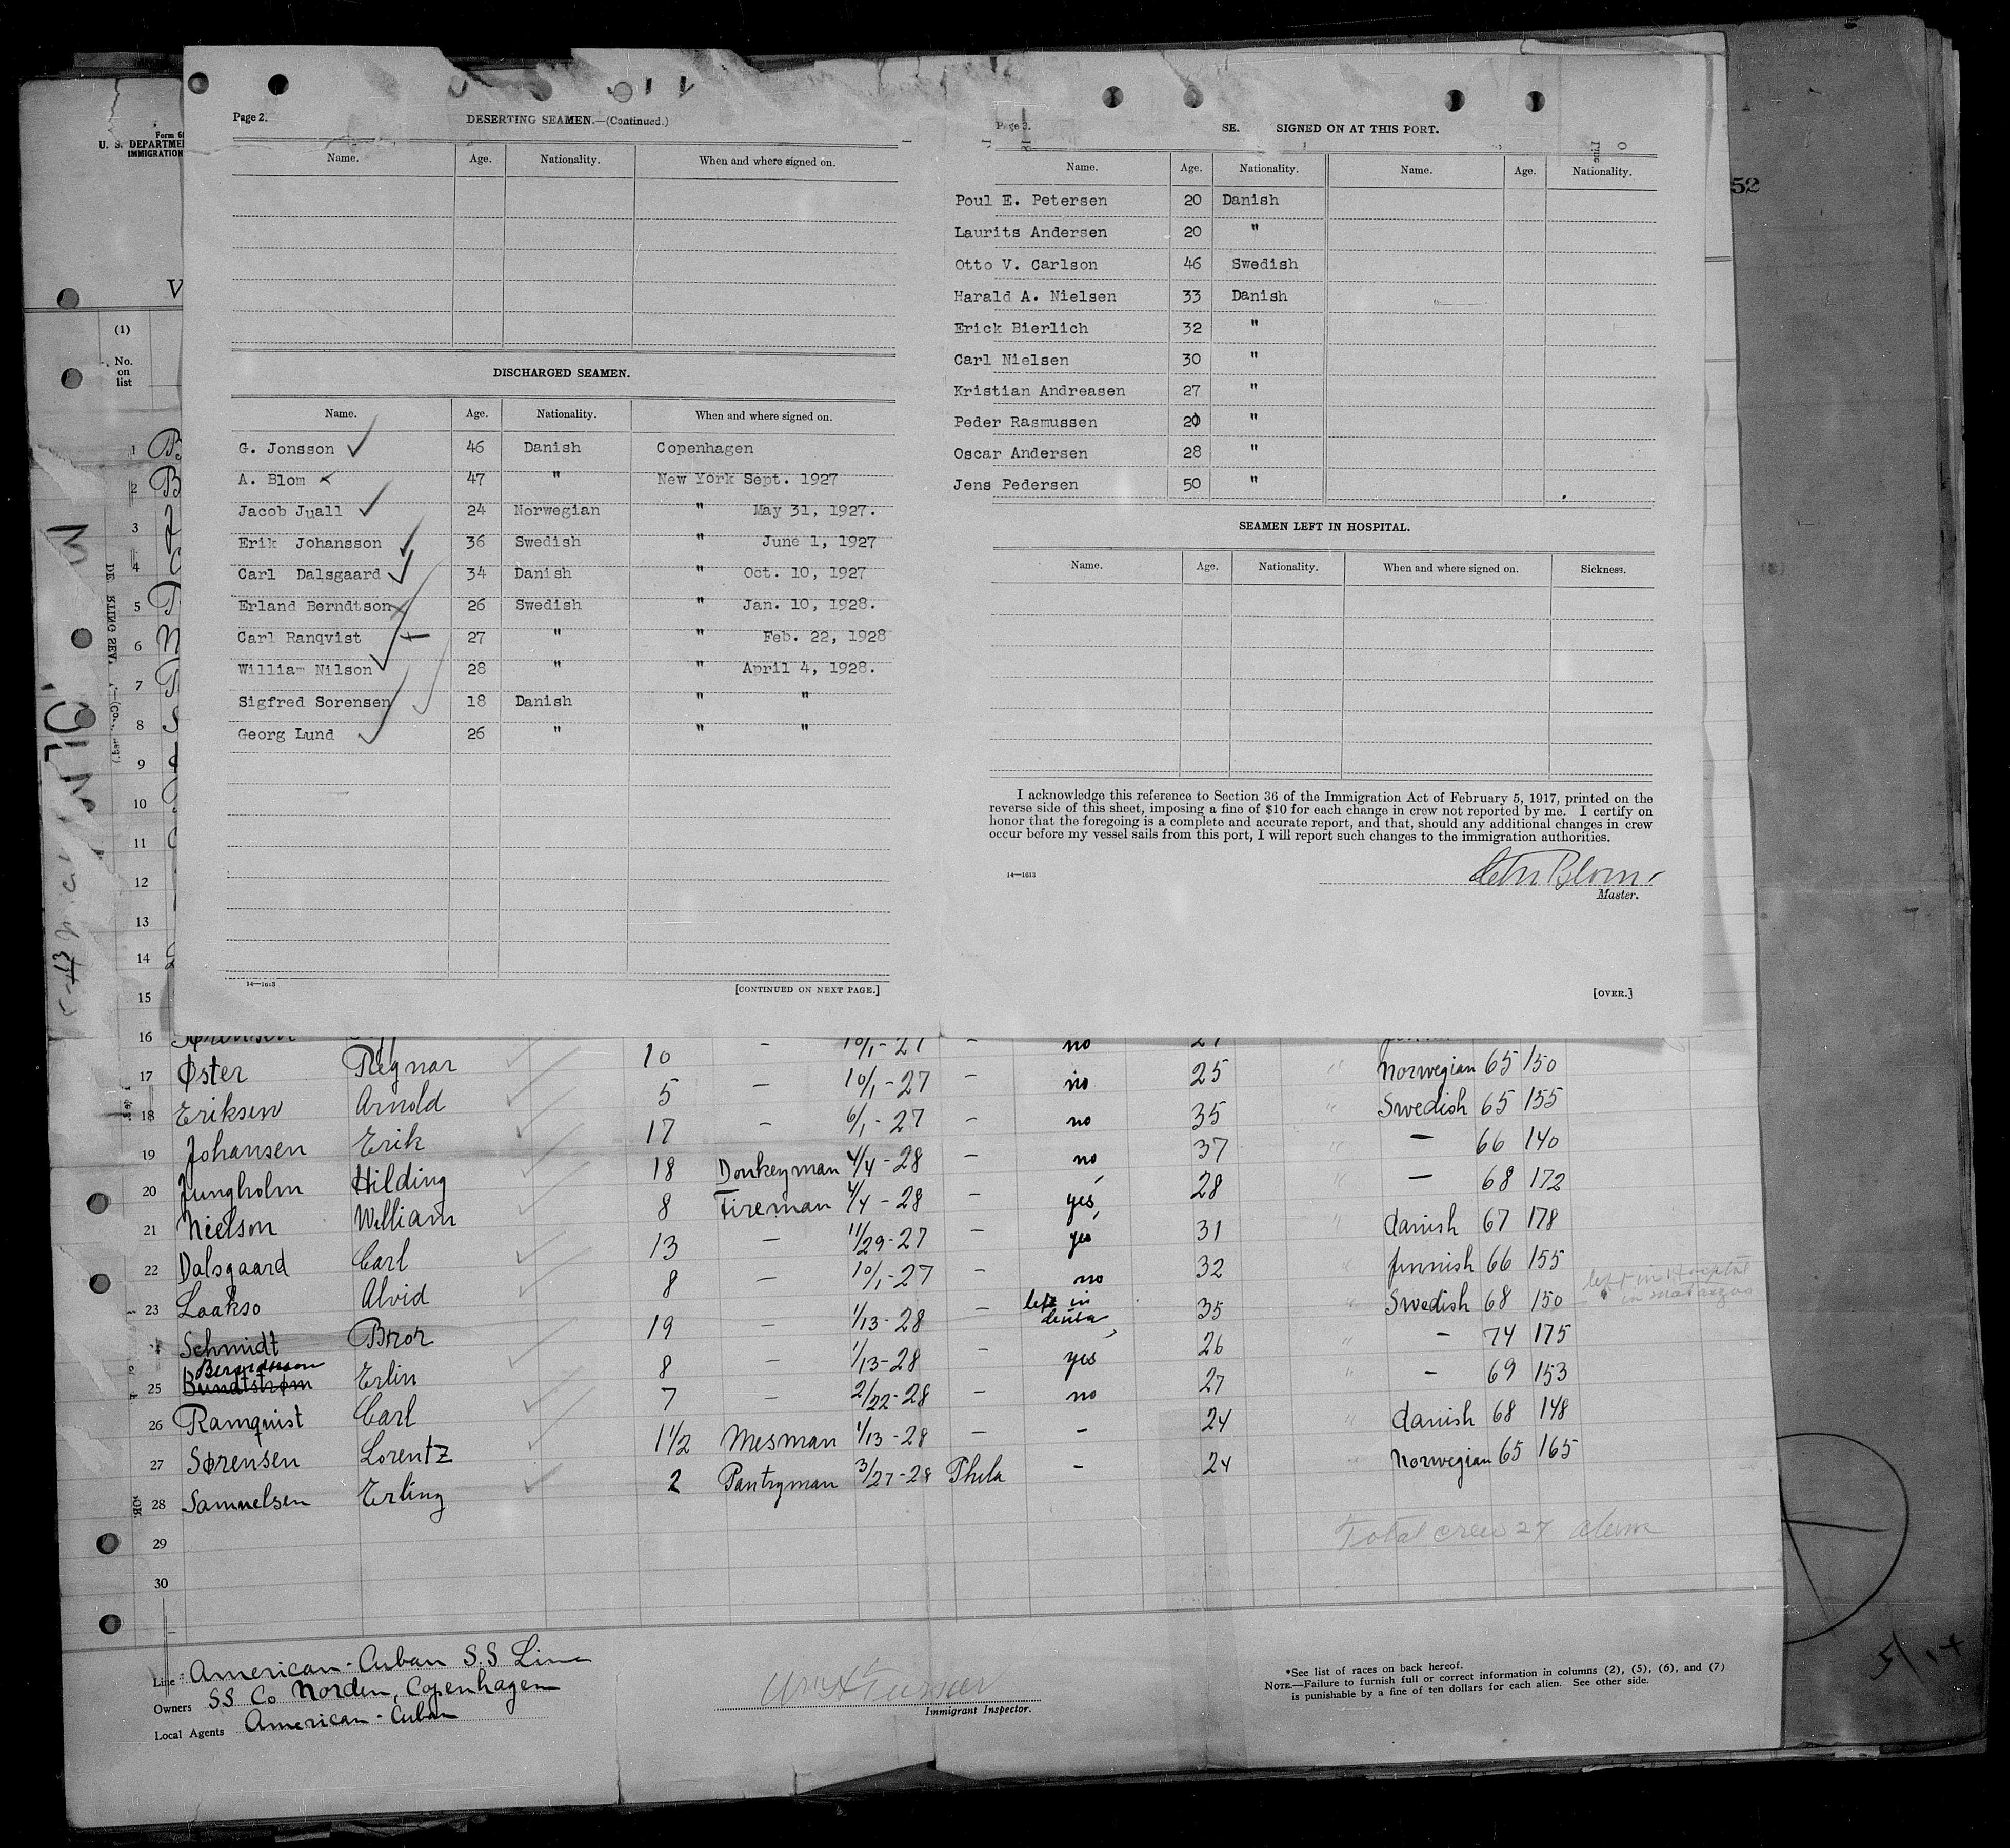 Page 2.
DESERTING SEAMEN.—(Continued.)
Name. Age. Nationality. When and where signed on.
DISCHARGED SEAMEN.
Name. Age. Nationality. When and where signed on.
G. Jonsson 46 Danish Copenhagen
A. Blom 47 " New York Sept. 1927
Jacob Juall 24 Norwegian " May 31, 1927.
Erik Johansson 36 Swedish " June 1, 1927
Carl Dalsgaard 34 Danish " Oct. 10, 1927
Erland Berndtson 26 Swedish " Jan. 10, 1928.
Carl Ranqvist 27 " " Feb. 22, 1928
William Nilson 28 " " April 4, 1928.
Sigfred Sorensen 18 Danish " "
Georg Lund 26 " " "
14—1613
[CONTINUED ON NEXT PAGE.]
Page 3.
SE. SIGNED ON AT THIS PORT.
Name. Age. Nationality. Name. Age. Nationality.
Poul E. Petersen 20 Danish
Laurits Andersen 20 "
Otto V. Carlson 46 Swedish
Harald A. Nielsen 33 Danish
Erick Bierlich 32 "
Carl Nielsen 30 "
Kristian Andreasen 27 "
Peder Rasmussen 20 "
Oscar Andersen 28 "
Jens Pedersen 50 "
SEAMEN LEFT IN HOSPITAL.
Name. Age. Nationality. When and where signed on. Sickness.
I acknowledge this reference to Section 36 of the Immigration Act of February 5, 1917, printed on the
reverse side of this sheet, imposing a fine of $10 for each change in crew not reported by me. I certify on
honor that the foregoing is a complete and accurate report, and that, should any additional changes in crew
occur before my vessel sails from this port, I will report such changes to the immigration authorities.
14—1613
Blom
Master.
[OVER.]
U. S. DEPARTME
IMMIGRATION
52
(1)
No.
on
list
1
2
3
4
5
6
7
8
9
10
11
12
13
14
15
16 10 — 10/1-27 no 27
17 Øster Regnar 10 — 10/1-27 — no 25 " Norwegian 65 150
18 Eriksen Arnold 5 — 6/1-27 — no 35 " Swedish 65 155
19 Johansen Erik 17 — no 37 " — 66 140
20 Jungholm Hilding 18 Donkeyman 4/4-28 — yes 28 " — 68 172
21 Nielson William 8 Fireman 4/4-28 — yes 31 " danish 67 178
22 Dalsgaard Carl 13 — 11/29-27 — no 32 " finnish 66 155
23 Laakso Alvid 8 — 10/1-27 — left in 35 " Swedish 68 150 left in Hospital
24 Schmidt Bror 19 — 1/13-28 — yes 26 " — 74 175
25 Bundtstrøm Erlin 8 — 1/13-28 — no 27 " — 69 153
26 Ramquist Carl 7 — 2/22-28 — — 24 " danish 68 148
27 Sørensen Lorentz 1 1/2 Mesman 1/13-28 — — 24 " Norwegian 65 165
28 Samuelsen Erling 2 Pantryman 3/27-28 Phila
29
30
Total crew 27
Line American-Cuban S.S Line
Owners SS Co Norden, Copenhagen
Local Agents American-Cuban
Immigrant Inspector.
*See list of races on back hereof.
NOTE.—Failure to furnish full or correct information in columns (2), (5), (6), and (7)
is punishable by a fine of ten dollars for each alien. See other side.
5/14